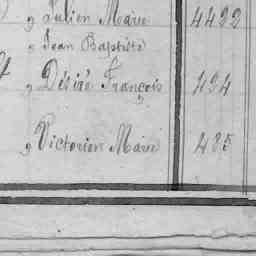 g Julien Marie 4422
g Jean Baptiste
g Désiré François 434
g Victorien Marie 485